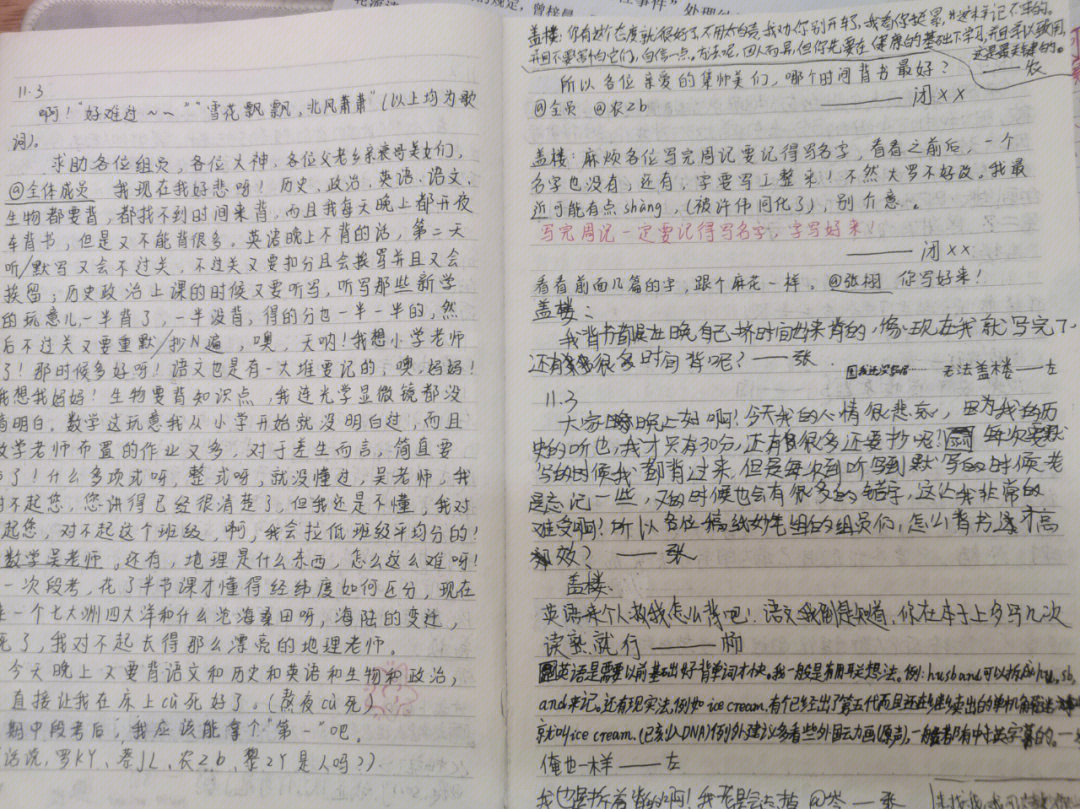 11.3
啊！“好难过~~”“雪花飘飘，北风萧萧”（以上均为歌
词）。
求助各位组员，各位大神，各位父老乡亲哥美女们，
@全体成员 我现在我好悲呀！历史、政治、英语、语文、
生物都要背，都找不到时间来背，而且我每天晚上都开夜
车背书，但是又不能背很多。英语晚上不背的话，第二天
听/默写又会不过关，不过关又要扣分且会挨骂并且又会
挨留；历史政治上课的时候又要听写，听写那些新学
的玩意儿，一半背了，一半没背，得的分也一半一半的，然
后不过关又要重默/抄N遍，噢，天呐！我想小学老师
了！那时候多好呀！语文也是有一大堆要记的，噢，妈妈！
我想我妈妈！生物要背知识点，我连光学显微镜都没
搞明白，数学这玩意我从小学开始就没明白过，而且
数学老师布置的作业又多，对于差生而言，简直要
了！什么多项式呀，整式呀，就没懂过，吴老师，我
对不起您，您讲得已经很清楚了，但我还是不懂，我对
起您，对不起这个班级，啊，我会拉低班级平均分的！
数学吴老师。还有，地理是什么东西，怎么这么难呀！
一次段考，花了半节课才懂得经纬度如何区分，现在
一个七大洲四大洋和什么沧海桑田呀，海陆的变迁，
死了，我对不起长得那么漂亮的地理老师。
今天晚上又要背语文和历史和英语和生物和政治，
直接让我在床上cù死好了。（熬夜cù死）
期中段考后，我应该能拿个“第一”吧。
话说，罗KY、蔡JL、农zb、黎ZY是人吗？）
盖楼：你有这个态度就很好了，不用太自责，我劝你别开车了，我看你挺累，
并且不要害怕它们，自信一点。方法呢，因人而异，但你先要在保障的基础下学习，
这是最关键的。
——农
所以各位亲爱的集帅美们，哪个时间背书最好？
@全员 @农zb ——闭××
盖楼：麻烦各位写完周记要记得写名字，看看之前后，一个
名字也没有，还有，字要写工整来！不然大罗不好改。我最
近可能有点shàng，（被许伟同化了），别介意。
写完周记一定要记得写名字，字写好来！
——闭××
看看前面几篇的字，跟个麻花一样，@张栩 你写好来！
盖楼：
我背书都是在晚自习挤时间出来背的，像现在我就写完了，
还有很多时间背呢？——张
无法盖楼——左
11.3
大家晚上好啊！今天我的心情很悲哀，因为我的历
史的听也，我才只有30分，还有很多还要抄呢！每次默
写的时候我都背过来，但是每次到听写到默写的时候老
是忘记一些，又的时候也会有很多的错字，这让我非常的
难受啊！所以各位 组的组员们，怎么背书才高
效？——张
盖楼、
英语来个人教我怎么背吧！语文我倒是知道，你在本子上多写几次
读熟就行——栩
英语是需要以前基础好背单词才快。我一般是有用联想法，例：husband可以拆成hu、sb、
and来记。还有现实法，例如 ice cream，
就叫ice cream.（已刻入DNA）例外建议多看些外国云力画（原声），一般都有中字英字幕的。
俺也一样——左
我也是拆着背的啊！